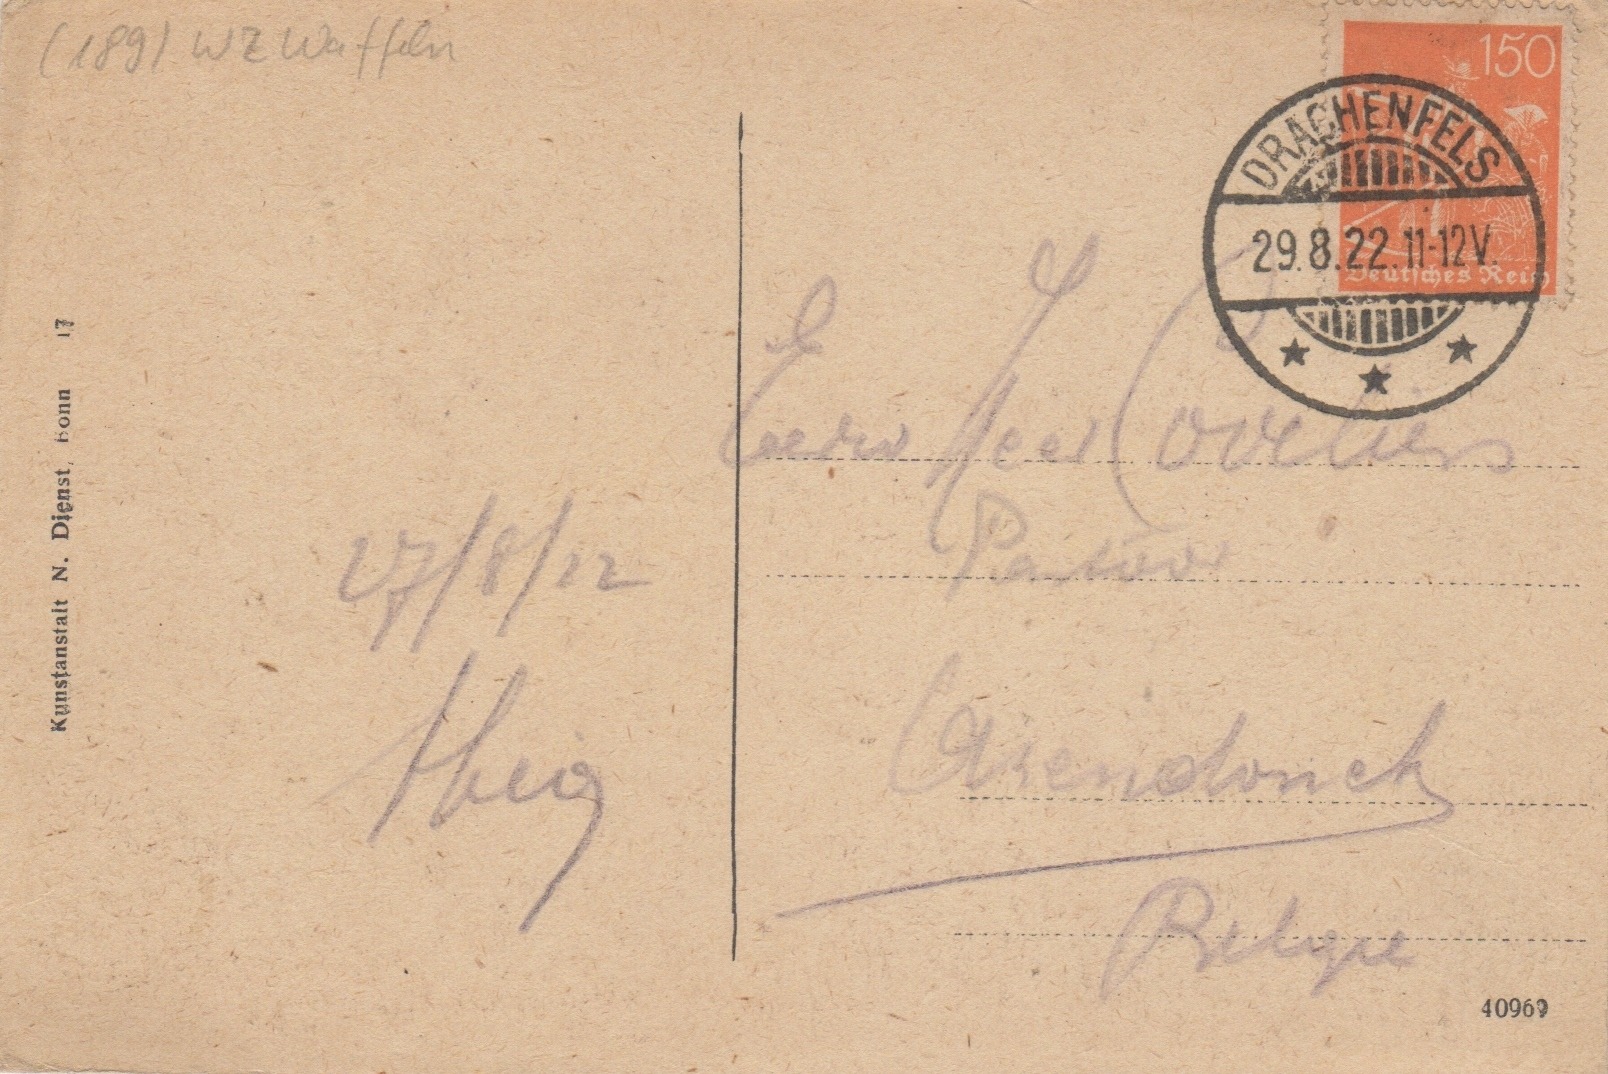 (189) WZ Waffeln
150
DRACHENFELS
29.8.22.11-12V.
Deutsches Reich
Eerw Heer
Pastoor
Arendonck
Belgie
27/8/22
Kunstanstalt N. Dienst, Bonn 17
40969